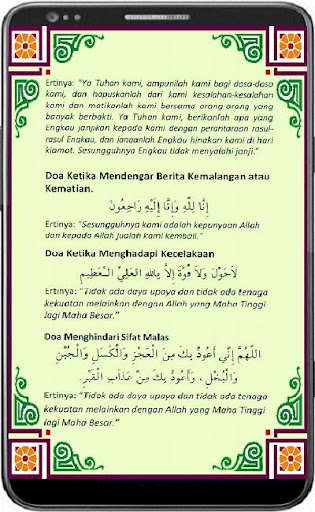 Ertinya: "Ya Tuhan kami, ampunilah kami bagi dosa-dosa
kami, dan hapuskanlah dari kami kesalahan-kesalahan
kami dan matikanlah kami bersama orang-orang yang
banyak berbakti. Ya Tuhan kami, berikanlah apa yang
Engkau janjikan kepada kami dengan perantaraan rasul-
rasul Engkau, dan janganlah Engkau hinakan kami di hari
kiamat. Sesungguhnya Engkau tidak menyalahi janji."
Doa Ketika Mendengar Berita Kemalangan atau
Kematian.
إِنَّا لِلَّهِ وَإِنَّا إِلَيْهِ رَاجِعُونَ
Ertinya: "Sesungguhnya kami adalah kepunyaan Allah
dan kepada Allah jualah kami kembali."
Doa Ketika Menghadapi Kecelakaan
لَاحَوْلَ وَلَا قُوَّةَ إِلاَّ بِاللهِ الْعَلِيِّ الْعَظِيْمِ
Ertinya: "Tidak ada daya upaya dan tidak ada tenaga
kekuatan melainkan dengan Allah yang Maha Tinggi
lagi Maha Besar."
Doa Menghindari Sifat Malas
اَللَّهُمَّ إِنِّي أَعُوذُ بِكَ مِنَ الْعَجْزِ وَالْكَسَلِ وَالْجُبْنِ
وَالْبُخْلِ، وَأَعُوذُ بِكَ مِنْ عَذَابِ الْقَبْرِ.
Ertinya: "Tidak ada daya upaya dan tidak ada tenaga
kekuatan melainkan dengan Allah yang Maha Tinggi
lagi Maha Besar."